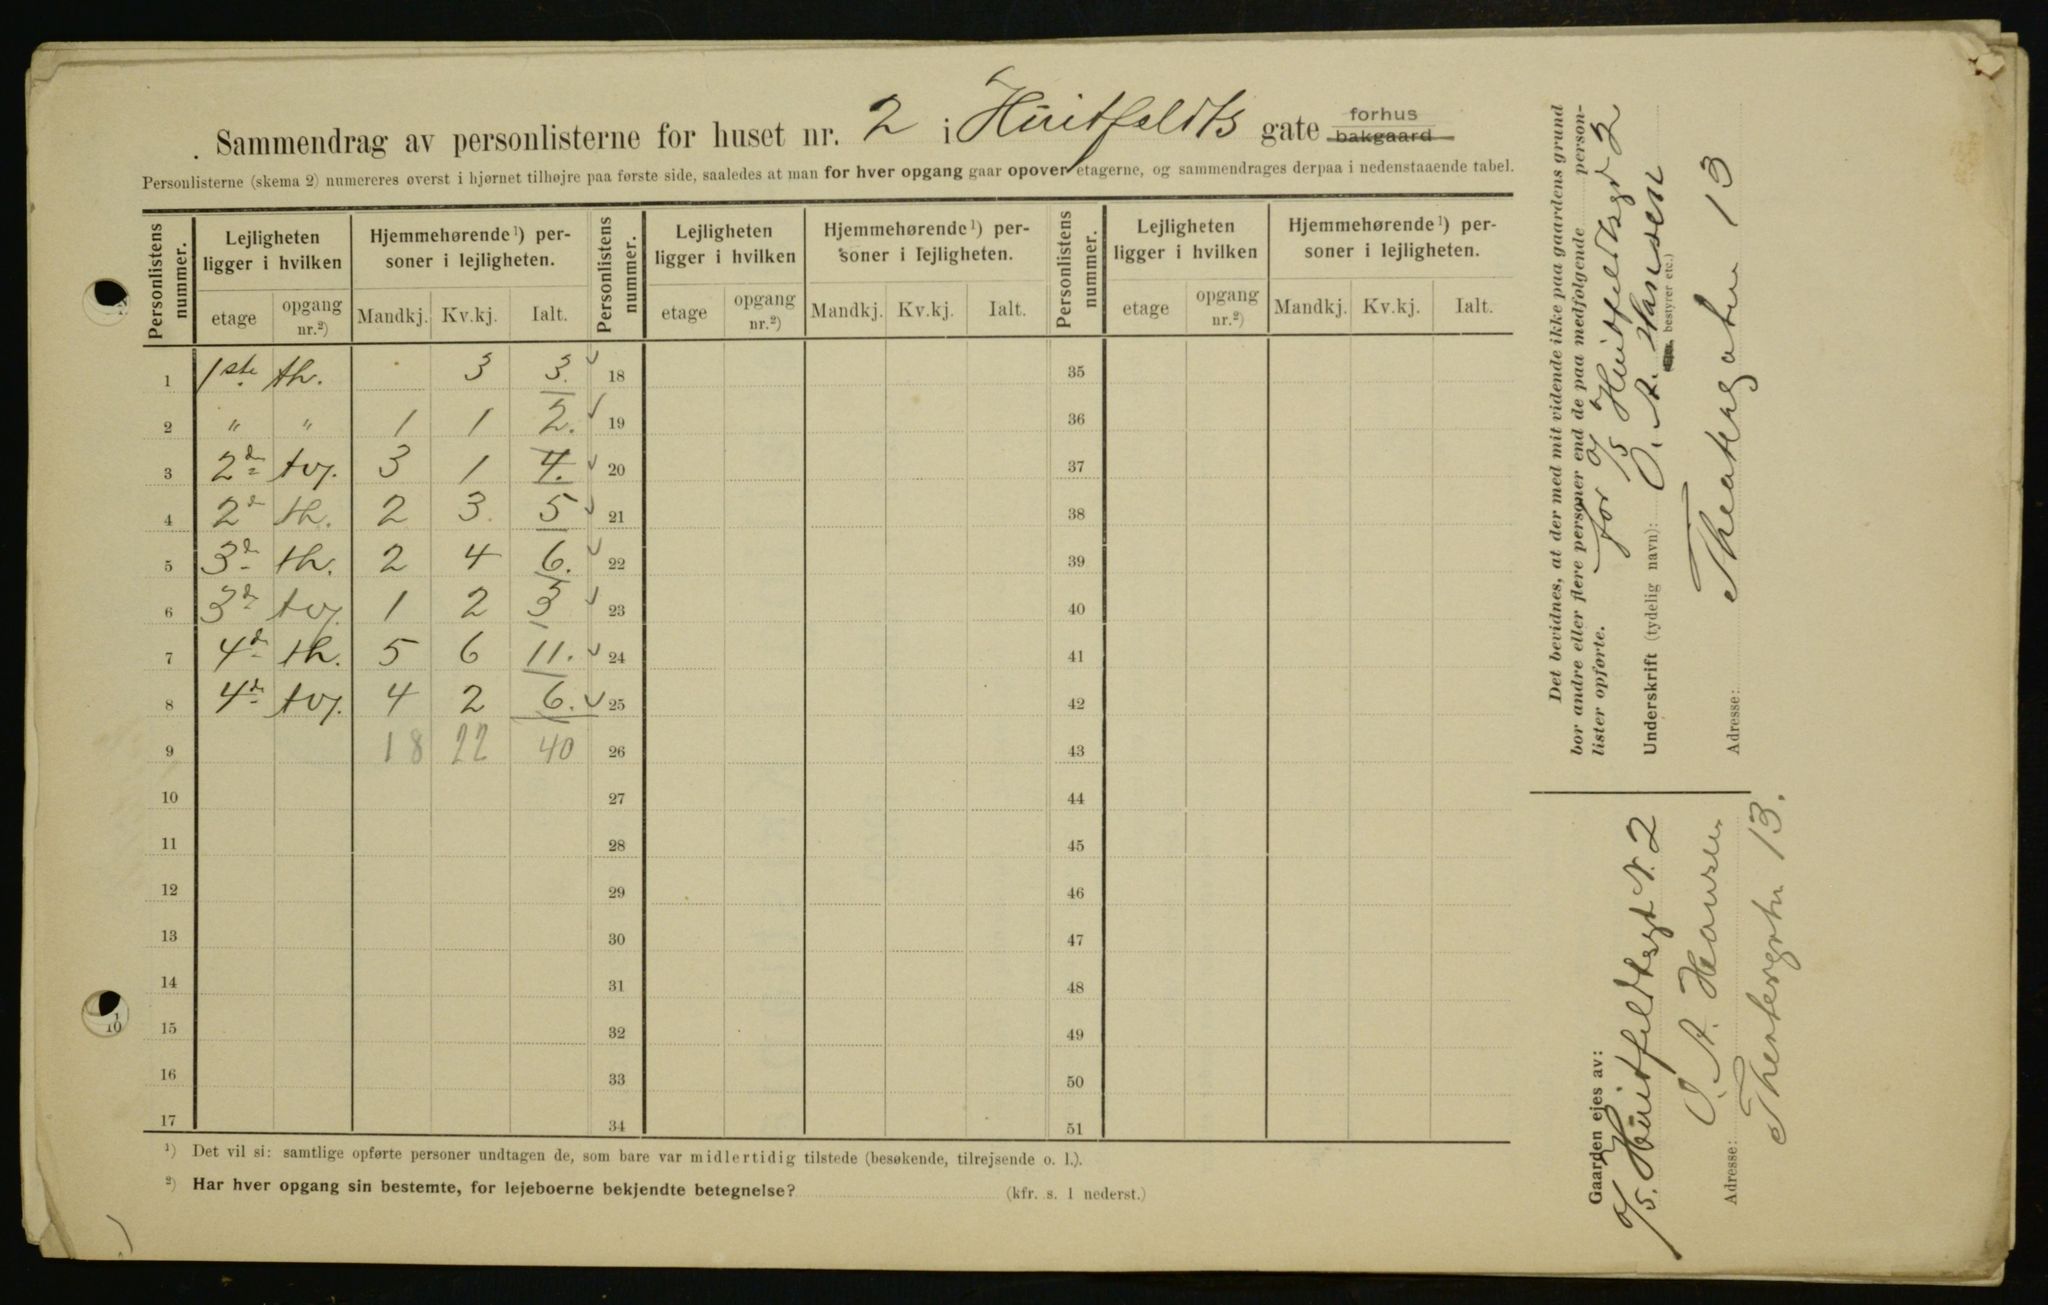 Sammendrag av personlisterne for huset nr. 2 i Huitfeldts gate forhus bakgaard
Personlisterne (skema 2) numereres øverst i hjørnet tilhøjre paa første side, saaledes at man for hver opgang gaar opover etagerne, og sammendrages derpaa i nedenstaaende tabel.
Personlistens nummer. Lejligheten ligger i hvilken Hjemmehørende¹) personer i lejligheten. Personlistens nummer. Lejligheten ligger i hvilken Hjemmehørende¹) personer i lejligheten. Personlistens nummer. Lejligheten ligger i hvilken Hjemmehørende¹) personer i lejligheten.
etage opgang nr.²) Mandkj. Kv.kj. Ialt. etage opgang nr.²) Mandkj. Kv.kj. Ialt. etage opgang nr.²) Mandkj. Kv.kj. Ialt.
1 1ste th. 3 3. 18 35
2 " " 1 1 2. 19 36
3 2d tv. 3 1 4. 20 37
4 2d th. 2 3. 5 21 38
5 3d th. 2 4 6. 22 39
6 3d tv. 1 2 3 23 40
7 4d th. 5 6 11. 24 41
8 4d tv. 4 2 6. 25 42
9 18 22 40 26 43
10 27 44
11 28 45
12 29 46
13 30 47
14 31 48
15 32 49
16 33 50
17 34 51
¹) Det vil si: samtlige opførte personer undtagen de, som bare var midlertidig tilstede (besøkende, tilrejsende o. l.).
²) Har hver opgang sin bestemte, for lejeboerne bekjendte betegnelse? (kfr. s. 1 nederst.)
Det bevidnes, at der med mit vidende ikke paa gaardens grund
bor andre eller flere personer end de paa medfølgende personlister opførte.
for A/S Huitfeldtsgd 2
Underskrift (tydelig navn): O. A. Hansen
bestyrer etc.)
Adresse: Theatergaten 13
Gaarden ejes av:
A/S. Huitfeldtsgt N. 2
O. A. Hansen
Adresse: Theatergtn 13.